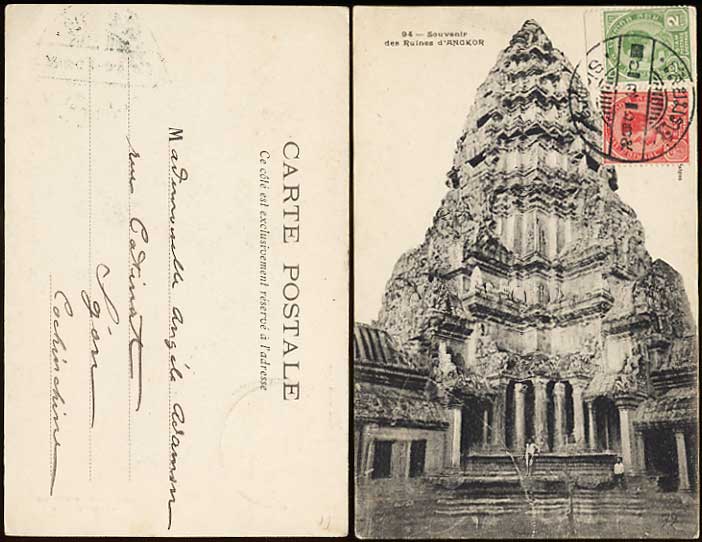 CARTE POSTALE
Ce côté est exclusivement réservé à l'adresse
Mademoiselle Angèle Adamon
rue Catinat
Saigon
Cochinchine
94 — Souvenir
des Ruines d'ANGKOR
2